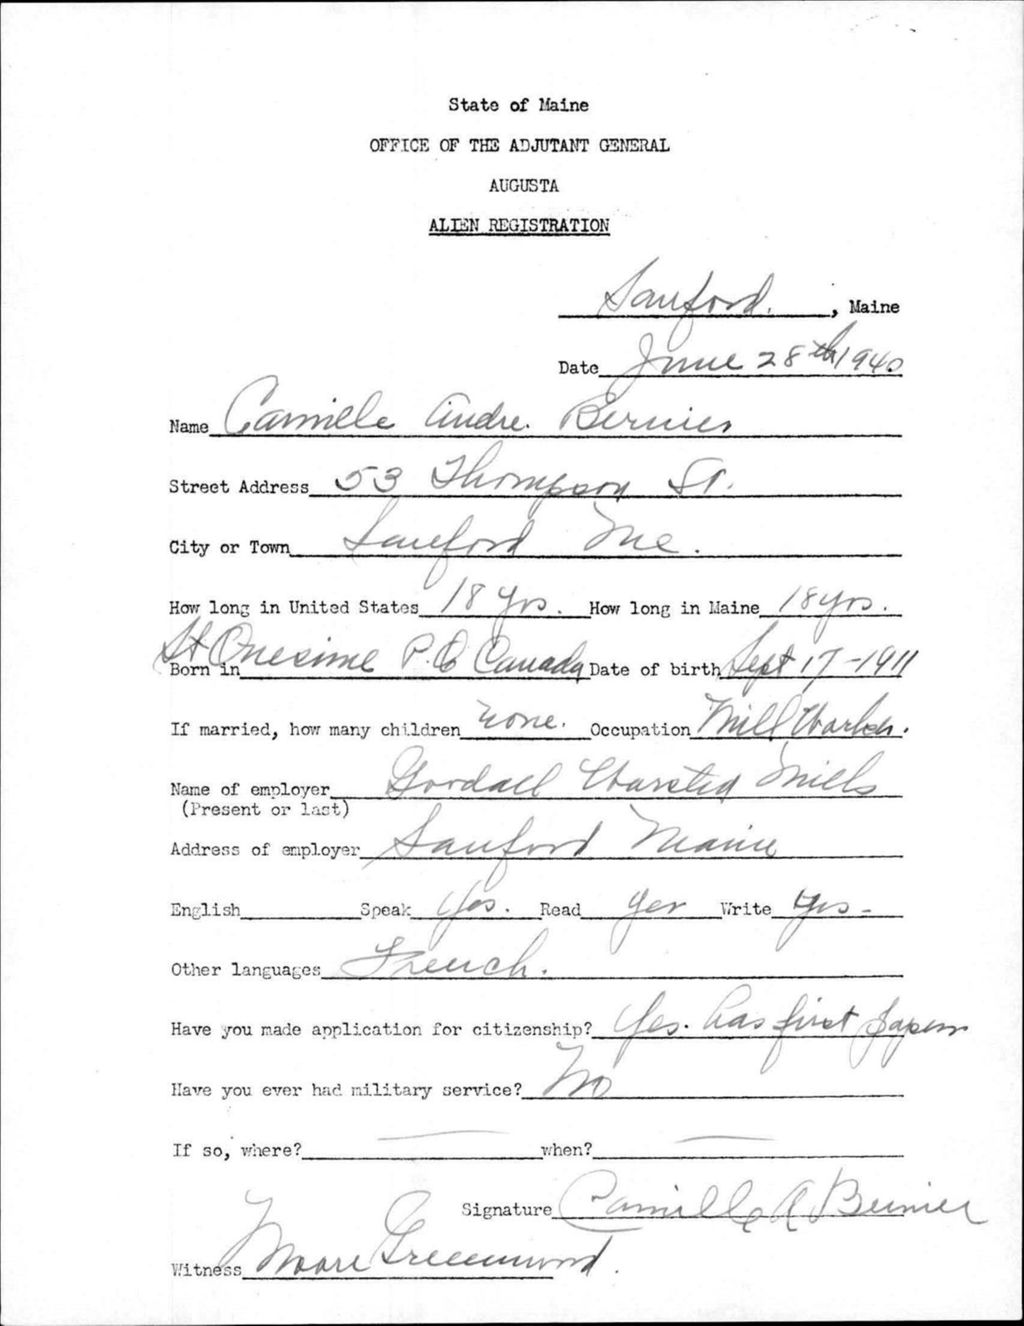 State of Maine
OFFICE OF THE ADJUTANT GENERAL
AUGUSTA
ALIEN REGISTRATION
Sanford, Maine
Date June 28th 1940
Name Camille Andre Bernier
Street Address 53 Thompson St.
City or Town Sanford Me.
How long in United States 18 yrs. How long in Maine 18 yrs.
Born in St Onesime P.Q Canada Date of birth Sept 17-1911
If married, how many children none. Occupation Mill Worker.
Name of employer Goodall Worsted Mills
(Present or last)
Address of employer Sanford Maine
English Speak Yes. Read Yes Write Yes-
Other languages French.
Have you made application for citizenship? Yes. has first papers
Have you ever had military service? No
If so, where? — when? —
Signature Camille A Bernier
Witness Moore Greenwood.